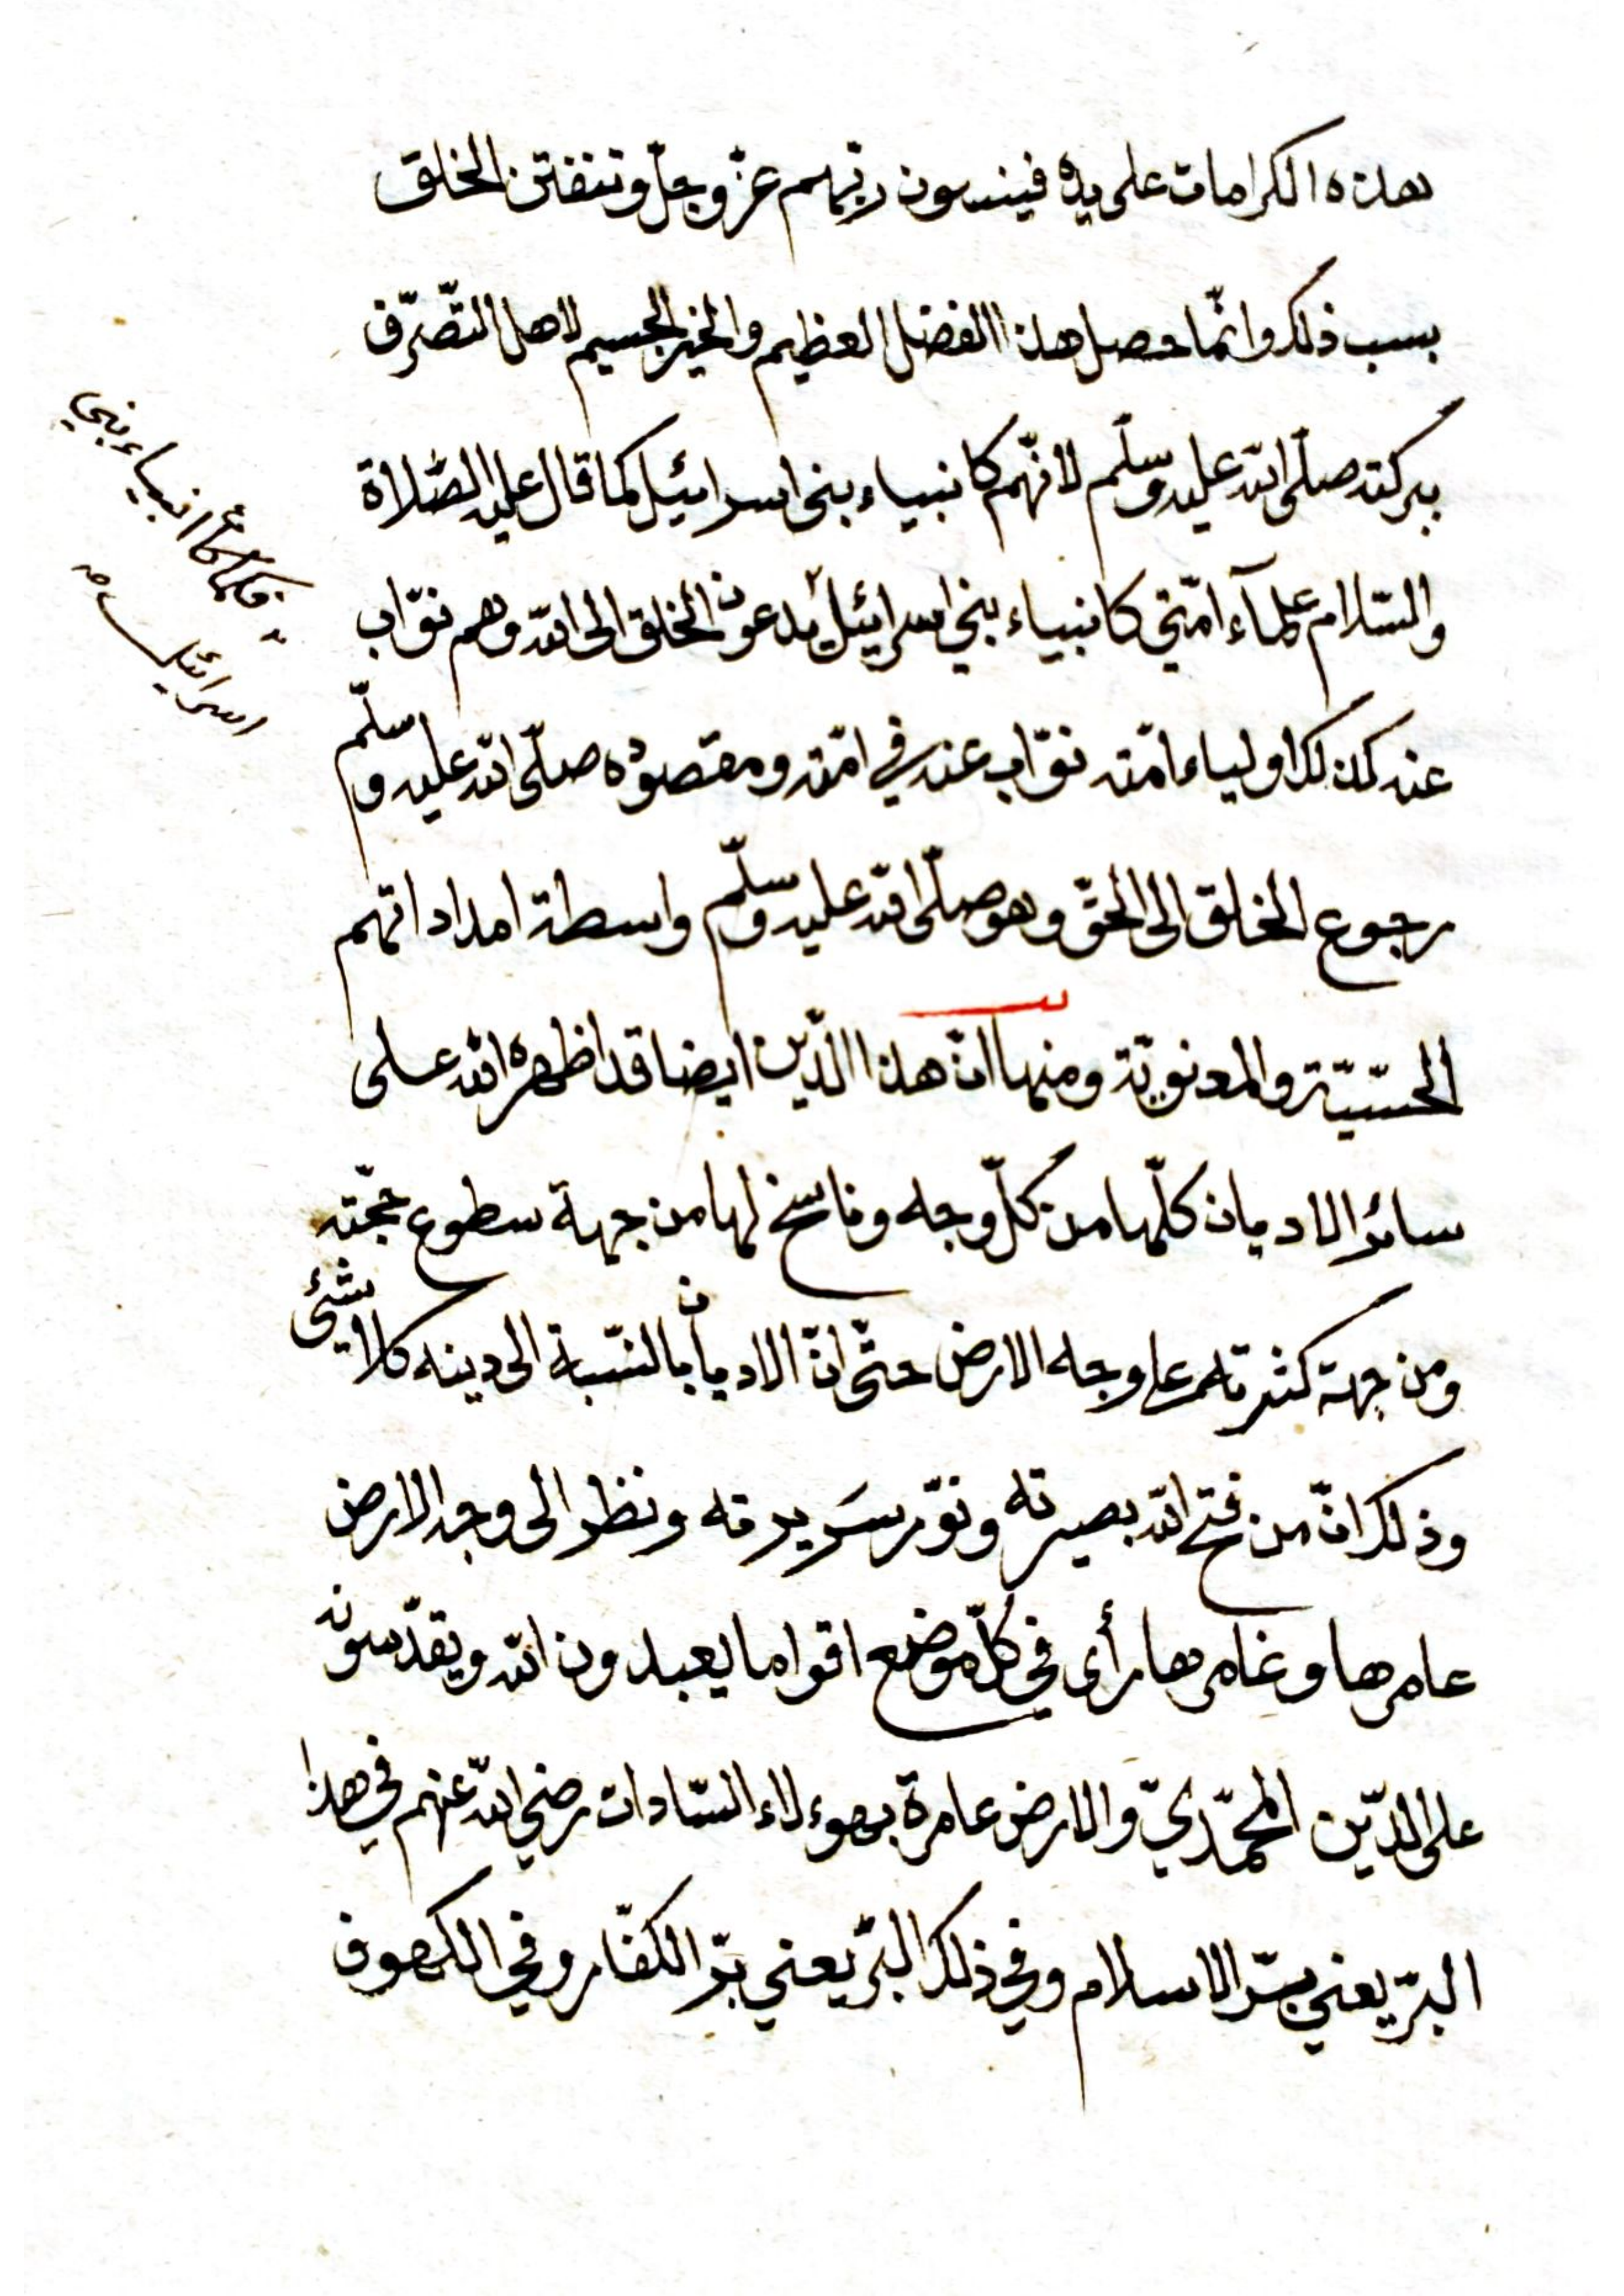 هذه الكرامات على يده فينسون ربّهم عزّ وجلّ وتنفتن الخلق
بسبب ذلك وانّما حصل هذا الفضل العظيم والخير الجسيم لاهل التّصرّف
ببركته صلّى الله عليه وسلّم لانّهم كانبياء بنى اسرائيل كما قال عليه الصّلاة
والسّلام علمآء امّتي كانبياء بني اسرائيل يدعون الخلق الى الله وهم نوّاب
عنه كذلك اولياء امّته نوّاب عنه في امّته ومقصوده صلّى الله عليه وسلّم
رجوع الخلق الى الحقّ وهو صلّى الله عليه وسلّم واسطة امداداتهم
الحسّيّة والمعنويّة ومنها انّ هذا الدّين ايضا قد اظهره الله على
سائر الاديان كلّها من كلّ وجه وناسخ لها من جهة سطوع حجّته
ومن جهة كثرتهم على وجه الارض حتّى انّ الاديان بالنّسبة الى دينه كلا شيئ
وذلك انّ من فتح الله بصيرته ونوّر سَريرته ونظر الى وجه الارض
عامرها وغامرها رأى في كلّ موضع اقواما يعبدون الله ويقدّسونه
على الدّين المحمّديّ والارض عامرة بهوءلاء السّادات رضي الله عنهم في هذا
البرّ يعني برّ الاسلام وفي ذلك البرّ يعني برّ الكفّار وفي الكهوف
فكما أنّ انبياء بني
اسرائيل